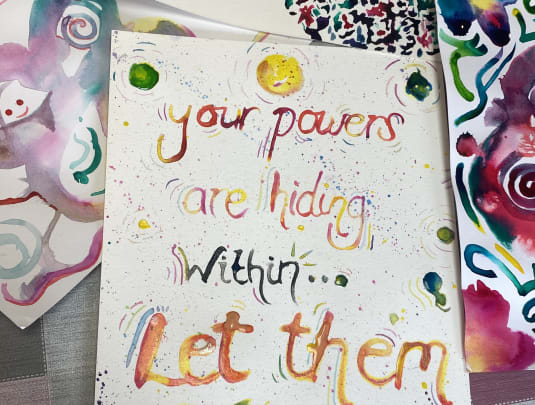 your powers
are hiding
within...
Let them